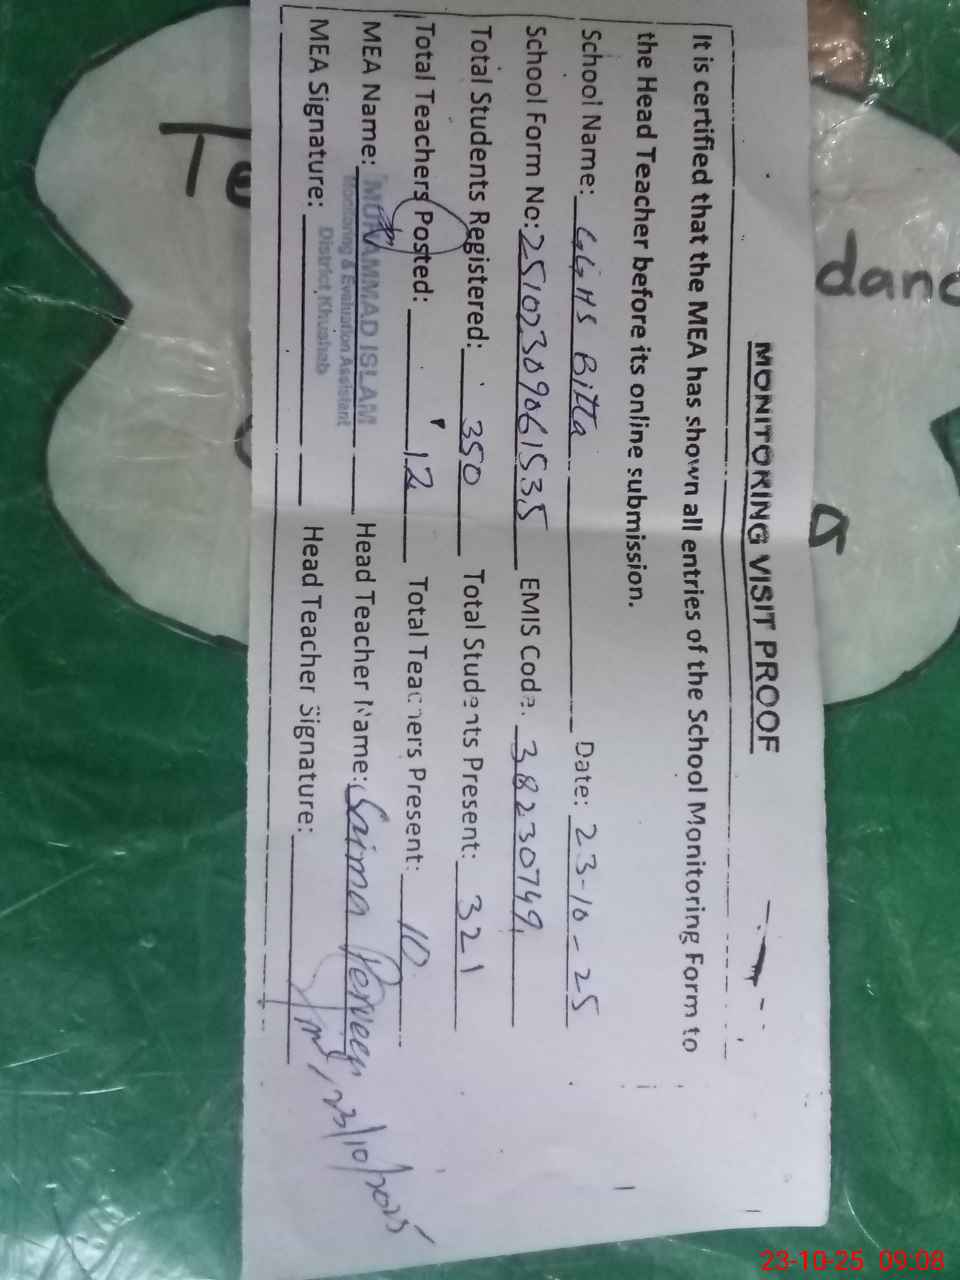 MONITORING VISIT PROOF
It is certified that the MEA has shown all entries of the School Monitoring Form to
the Head Teacher before its online submission.
School Name: GGHS Bitta Date: 23-10-25
School Form No: 25102309061535 EMIS Code. 38230749
Total Students Registered: 350 Total Students Present: 321
Total Teachers Posted: 12 Total Teachers Present: 10
MEA Name: MUHAMMAD ISLAM Head Teacher Name: Saima Perveen
Monitoring & Evaluation Assistant
District Khushab
MEA Signature: Head Teacher Signature:
23/10/2025
23-10-25 09:08